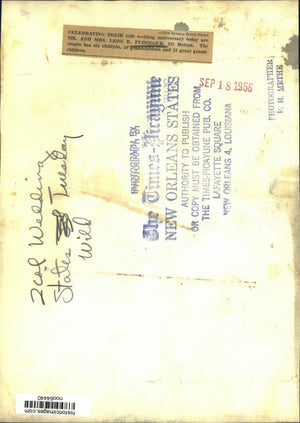 CELEBRATING THEIR 50th wedding anniversary today are
MR. AND MRS. LEON F. 921 Helena. The
couple has six children, 14 grandchildren and 12 great grand-
children.
SEP 18 1956
PHOTOGRAPHER
F. H. METHE
PHOTOGRAPH BY
The Times-Picayune
NEW ORLEANS STATES
AUTHORITY TO PUBLISH
OR COPY MUST BE OBTAINED FROM
THE TIMES-PICAYUNE PUB. CO.
LAFAYETTE SQUARE
NEW ORLEANS 4, LOUISIANA
2 col Wedding
States Tuesday
Wild
historicimages.com
noo64440